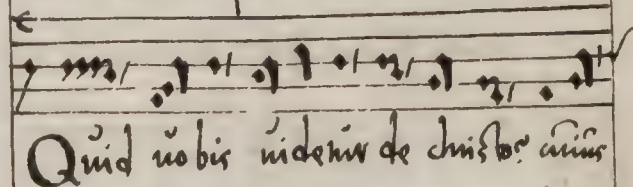 Quid uobis uidetur de christo? cuius